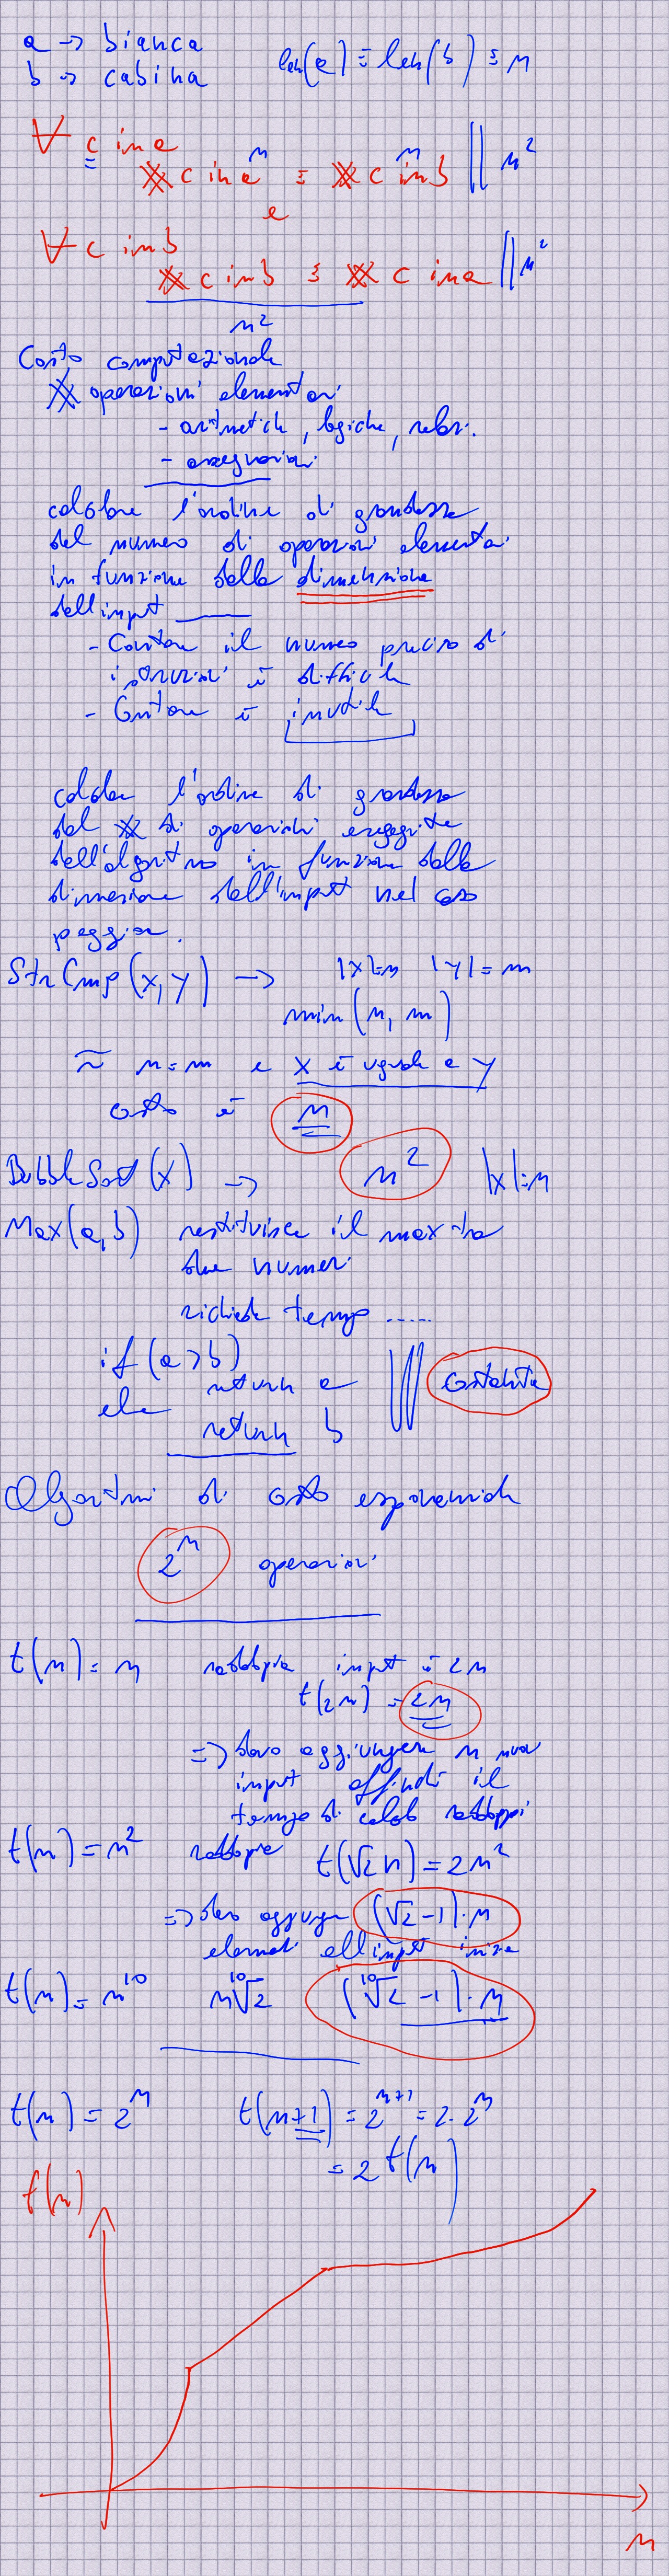 a → bianca
b → cabina
len(a) = len(b) = n
∀ c in a
# c in a = # c in b || n²
n n
e
∀ c in b
# c in b = # c in a || n²
n²
Costo computazionale
# operazioni elementari
- aritmetiche, logiche, relaz.
- assegnazioni
calcolare l'ordine di grandezza
del numero di operazioni elementari
in funzione della dimensione
dell'input
- Contare il numero preciso di
istruzioni è difficile
- Contare è inutile
calcolare l'ordine di grandezza
del # di operazioni eseguite
dell'algoritmo in funzione della
dimensione dell'input nel caso
peggiore.
StrCmp(x,y) → |x|=n |y|=m
min(n, m)
≈ n=m e x è uguale a y
costo è n
BubbleSort(x) → n² |x|=n
Max(a,b) restituisce il max tra
due numeri
richiede tempo .....
if (a>b)
return a
else
return b
costante
Algoritmi di costo esponenziale
2ⁿ operazioni
t(n) = n raddoppia input è 2n
t(2n) = 2n
=> devo aggiungere n nuovi
input affinché il
tempo di calcolo raddoppi
t(n) = n² raddoppia t(√2 n) = 2n²
=> devo aggiungere (√2 -1)·n
elementi all'input iniziale
t(n) = n¹⁰ n¹⁰√2 (¹⁰√2 -1)·n
t(n) = 2ⁿ t(n+1) = 2ⁿ⁺¹ = 2·2ⁿ
= 2 t(n)
f(n)
n